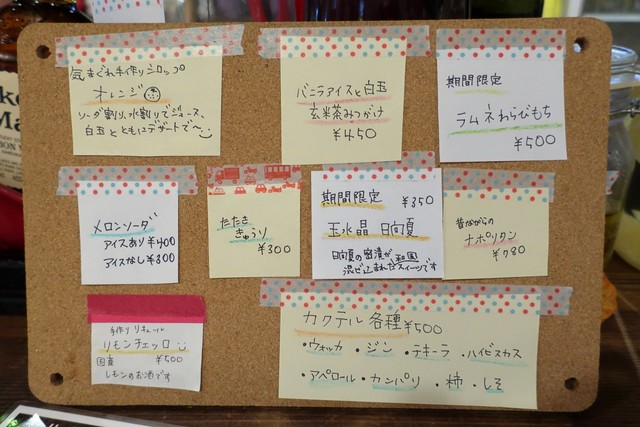 気まぐれ手作りシロップ
オレンジ
ソーダ割り、水割りでジュース、
白玉とともにデザートで〜
バニラアイスと白玉
玄米茶みつがけ
¥450
期間限定
ラムネわらびもち
¥500
メロンソーダ
アイスあり¥400
アイスなし¥300
たたき
きゅうり
¥300
期間限定 ¥350
玉水晶 日向夏
日向夏の蜜漬が
混ぜ込まれた和風スイーツです
昔ながらの
ナポリタン
¥780
手作りリキュール
リモンチェッロ
国産 ¥500
レモンのお酒です
カクテル各種¥500
・ウォッカ ・ジン ・テキーラ ・ハイビスカス
・アペロール ・カンパリ ・柿 ・しそ